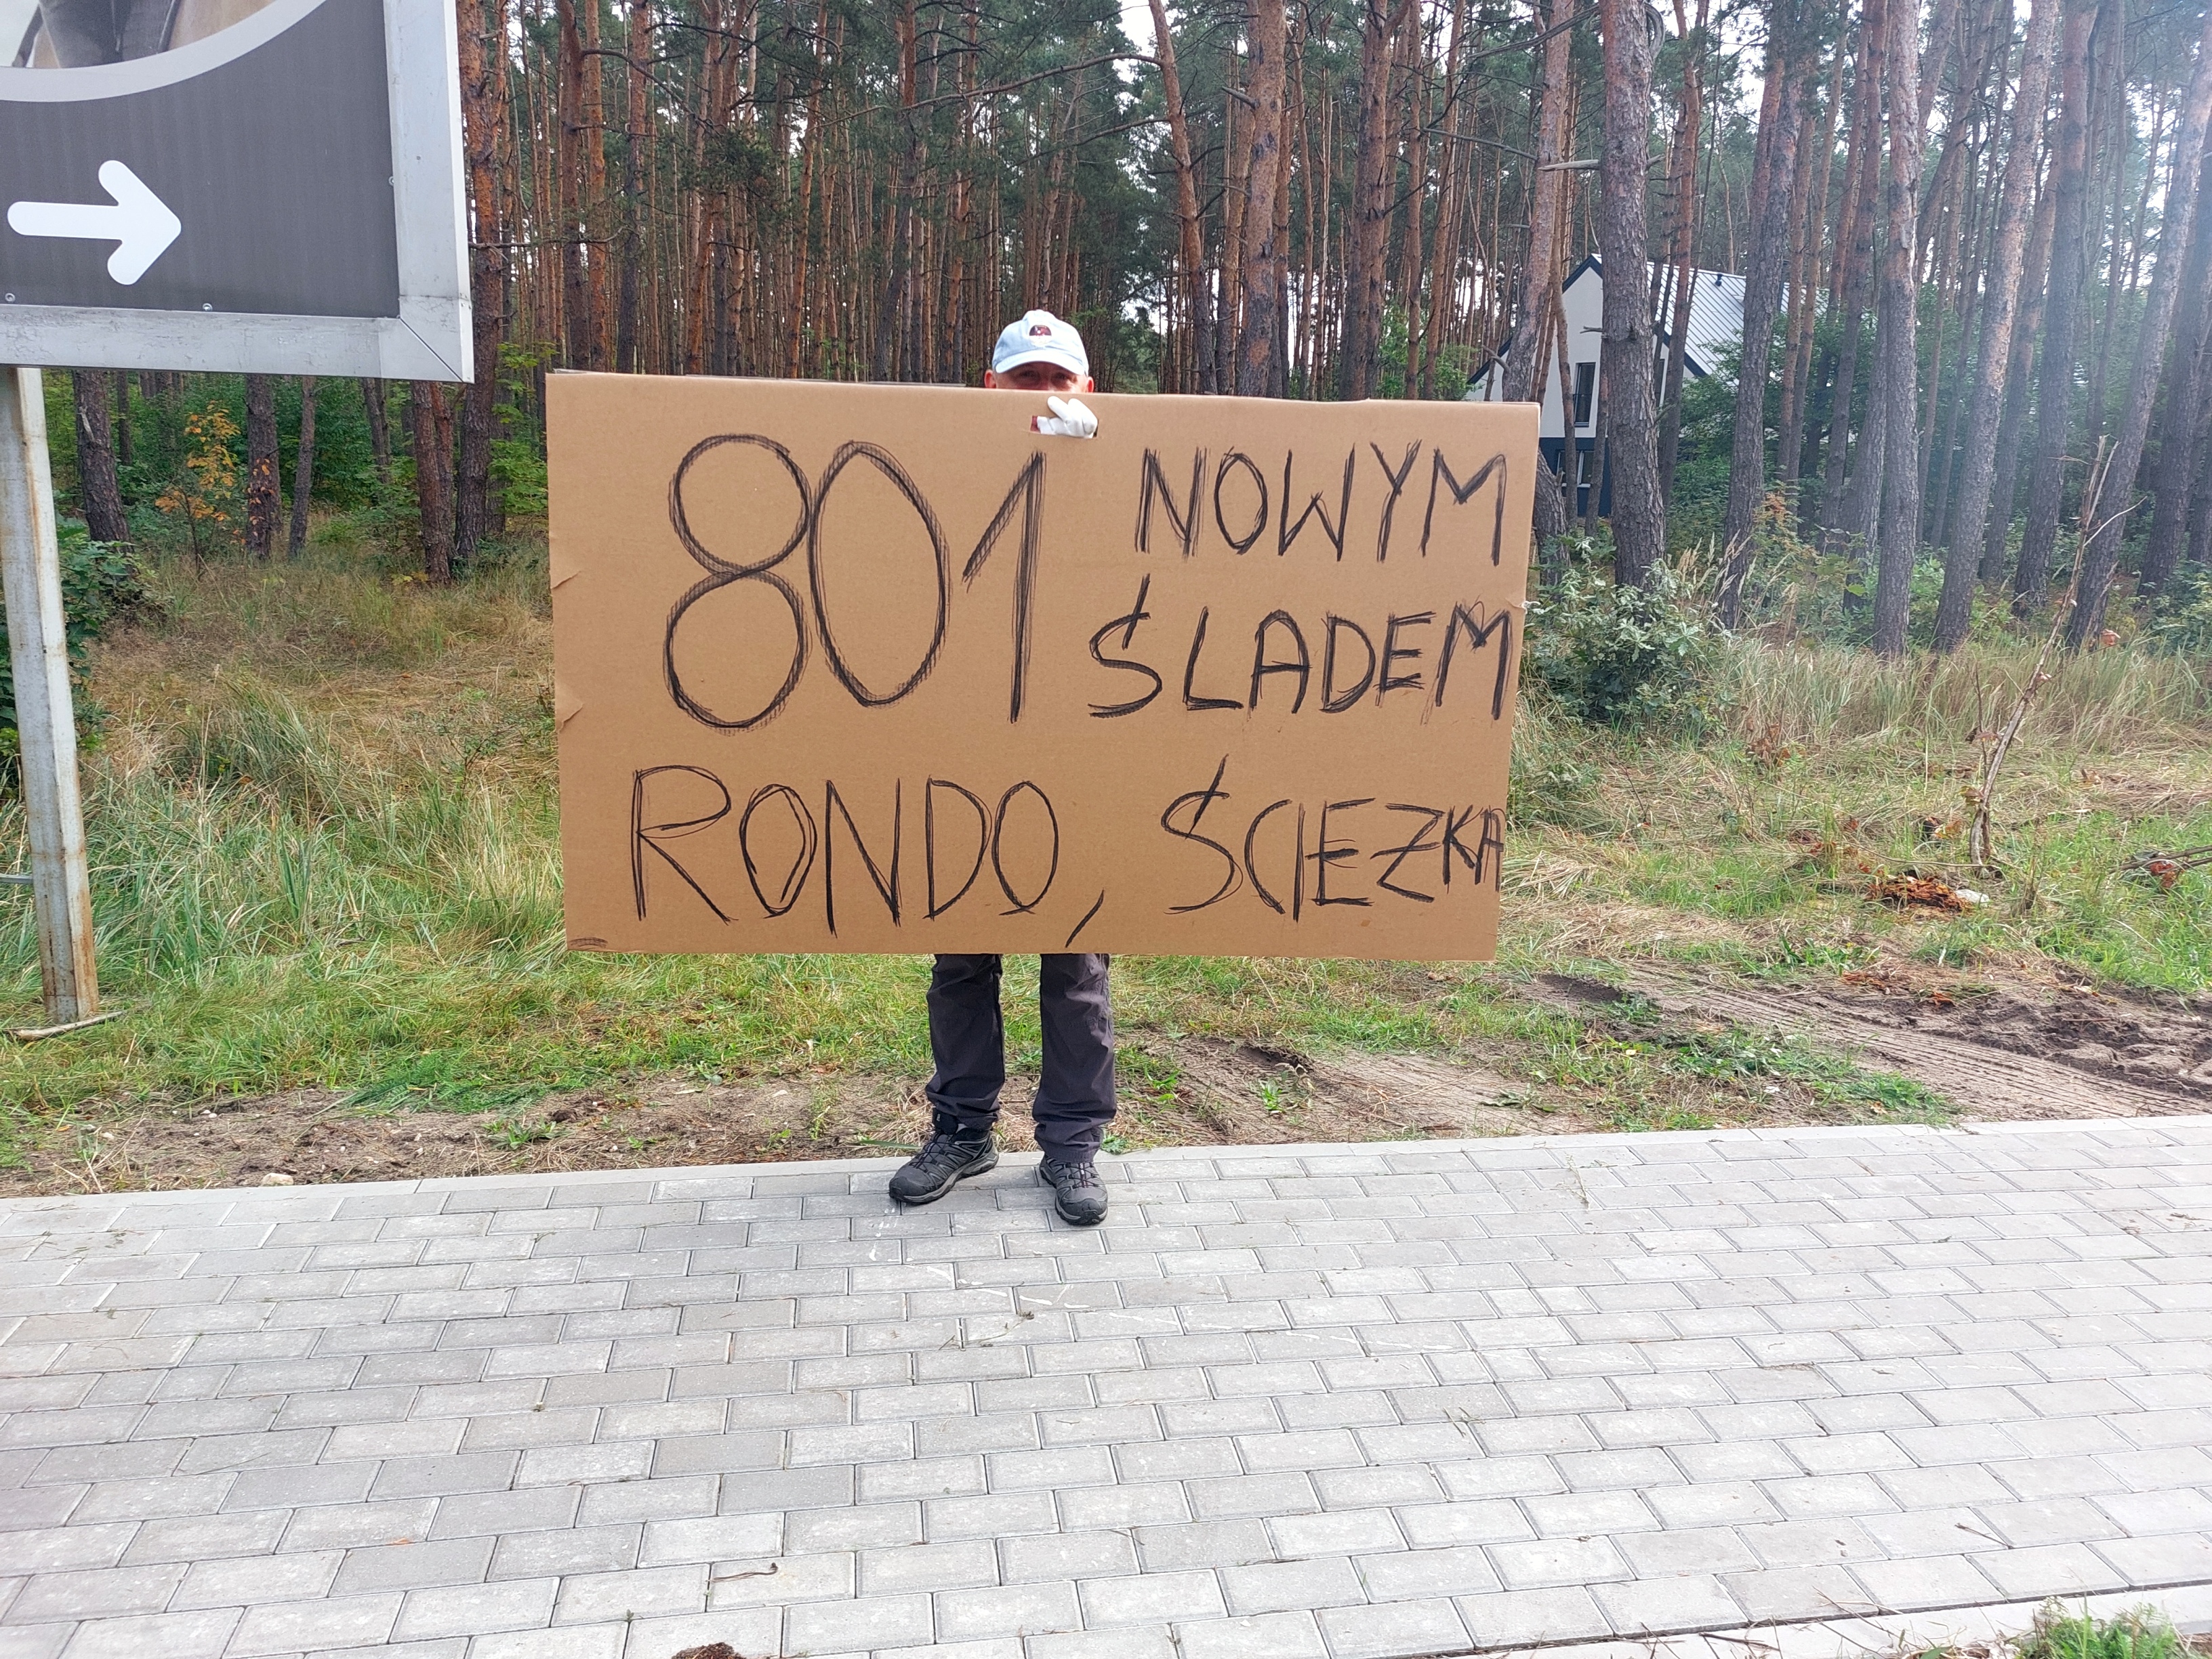 801 NOWYM
ŚLADEM
RONDO, ŚCIEŻKA